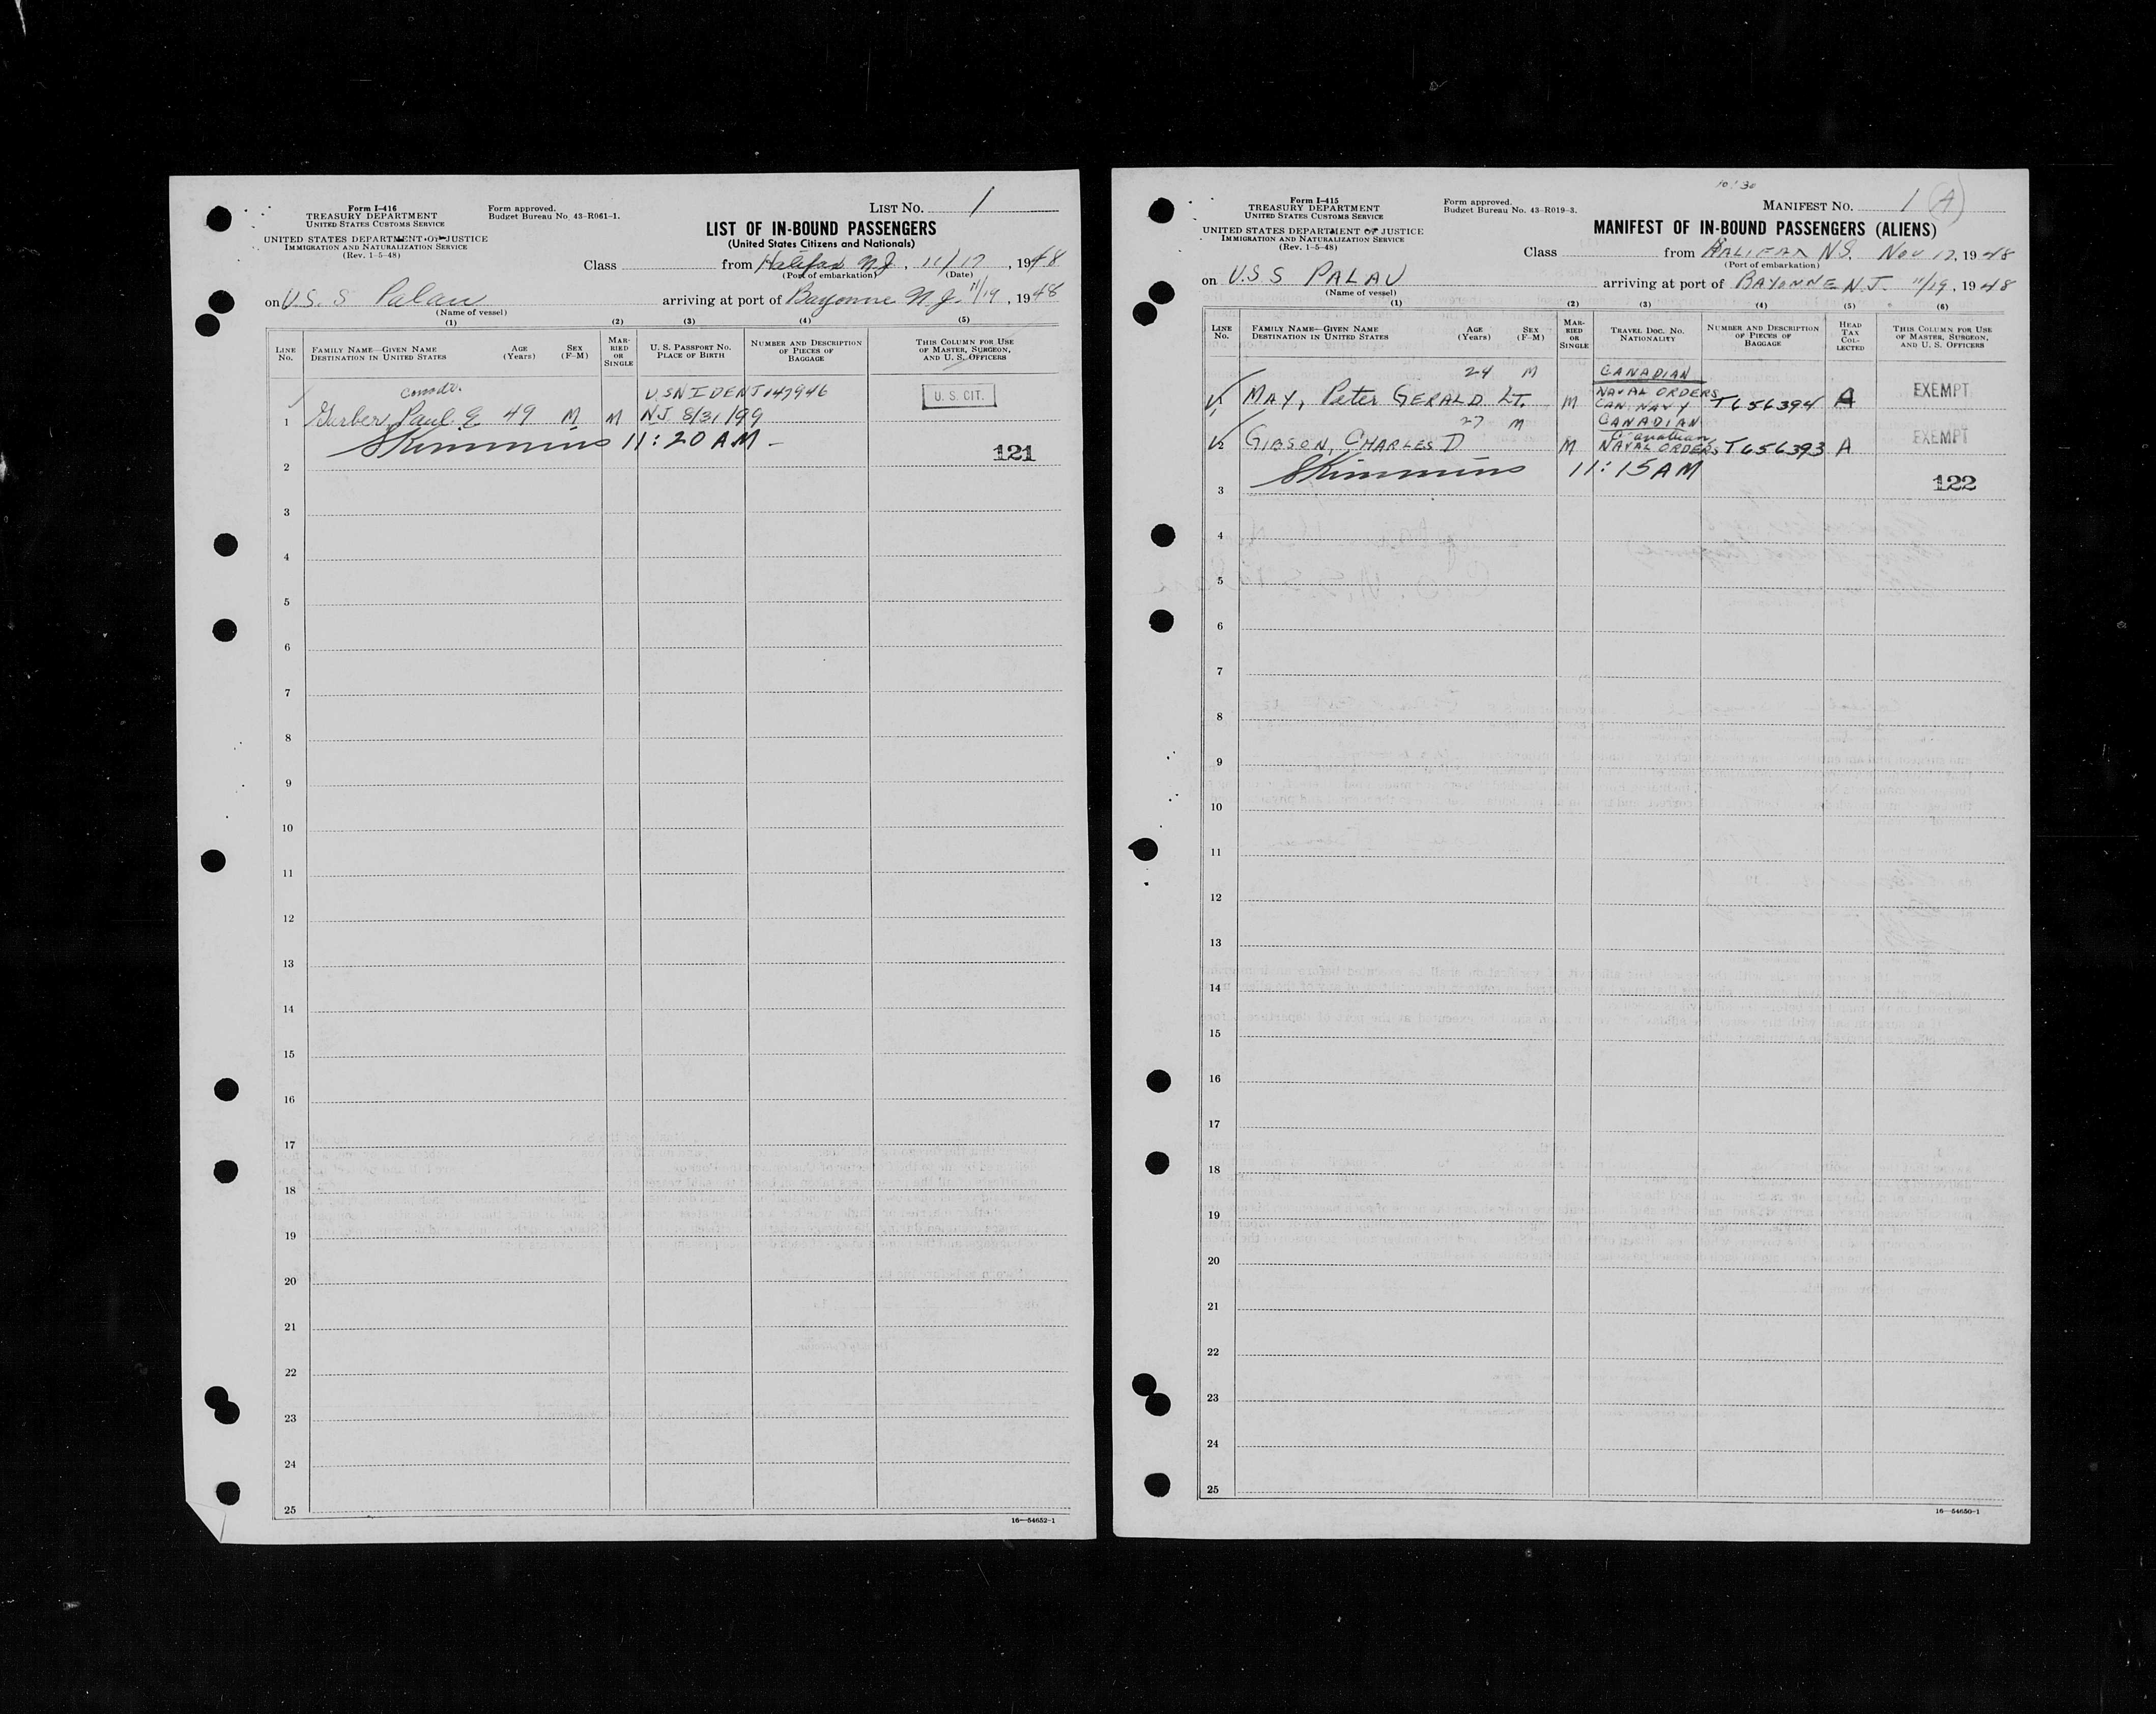 Form I-416
TREASURY DEPARTMENT
UNITED STATES CUSTOMS SERVICE
UNITED STATES DEPARTMENT OF JUSTICE
IMMIGRATION AND NATURALIZATION SERVICE
(Rev. 1-5-48)
Form approved.
Budget Bureau No. 43-R061-1.
LIST NO. 1
LIST OF IN-BOUND PASSENGERS
(United States Citizens and Nationals)
Class from Halifax N.J., 11/17, 1948
(Port of embarkation) (Date)
on U.S. S Palau arriving at port of Bayonne N.J. 11/19, 1948
(Name of vessel)
(1) (2) (3) (4) (5)
LINE NO.
FAMILY NAME—GIVEN NAME
DESTINATION IN UNITED STATES
AGE (Years)
SEX (F-M)
MARRIED OR SINGLE
U. S. PASSPORT NO.
PLACE OF BIRTH
NUMBER AND DESCRIPTION OF PIECES OF BAGGAGE
THIS COLUMN FOR USE OF MASTER, SURGEON, AND U. S. OFFICERS
Comdr. USN IDENT 147946 U. S. CIT.
1 Gerber, Paul E 49 M M NJ 8/31/99
Skimmins 11:20 AM - 121
2
3
4
5
6
7
8
9
10
11
12
13
14
15
16
17
18
19
20
21
22
23
24
25
16-54652-1
Form I-415
TREASURY DEPARTMENT
UNITED STATES CUSTOMS SERVICE
UNITED STATES DEPARTMENT OF JUSTICE
IMMIGRATION AND NATURALIZATION SERVICE
(Rev. 1-5-48)
Form approved.
Budget Bureau No. 43-R019-3.
10:30
MANIFEST NO. 1 (A)
MANIFEST OF IN-BOUND PASSENGERS (ALIENS)
Class from HALIFAX N.S. Nov 17, 1948
(Port of embarkation)
on U.S S PALAU arriving at port of BAYONNE N.J. 11/19, 1948
(Name of vessel)
(1) (2) (3) (4) (5) (6)
LINE NO.
FAMILY NAME—GIVEN NAME
DESTINATION IN UNITED STATES
AGE (Years)
SEX (F-M)
MARRIED OR SINGLE
TRAVEL DOC. NO.
NATIONALITY
NUMBER AND DESCRIPTION OF PIECES OF BAGGAGE
HEAD TAX COLLECTED
THIS COLUMN FOR USE OF MASTER, SURGEON, AND U. S. OFFICERS
24 M CANADIAN
NAVAL ORDERS EXEMPT
1 MAY, Peter GERALD LT. M CAN. NAVY T656394 A
27 M CANADIAN
Canadian EXEMPT
2 GIBSON, CHARLES D M NAVAL ORDERS T656393 A
Skimmins 11:15 AM
122
3
4
5
6
7
8
9
10
11
12
13
14
15
16
17
18
19
20
21
22
23
24
25
16-54650-1